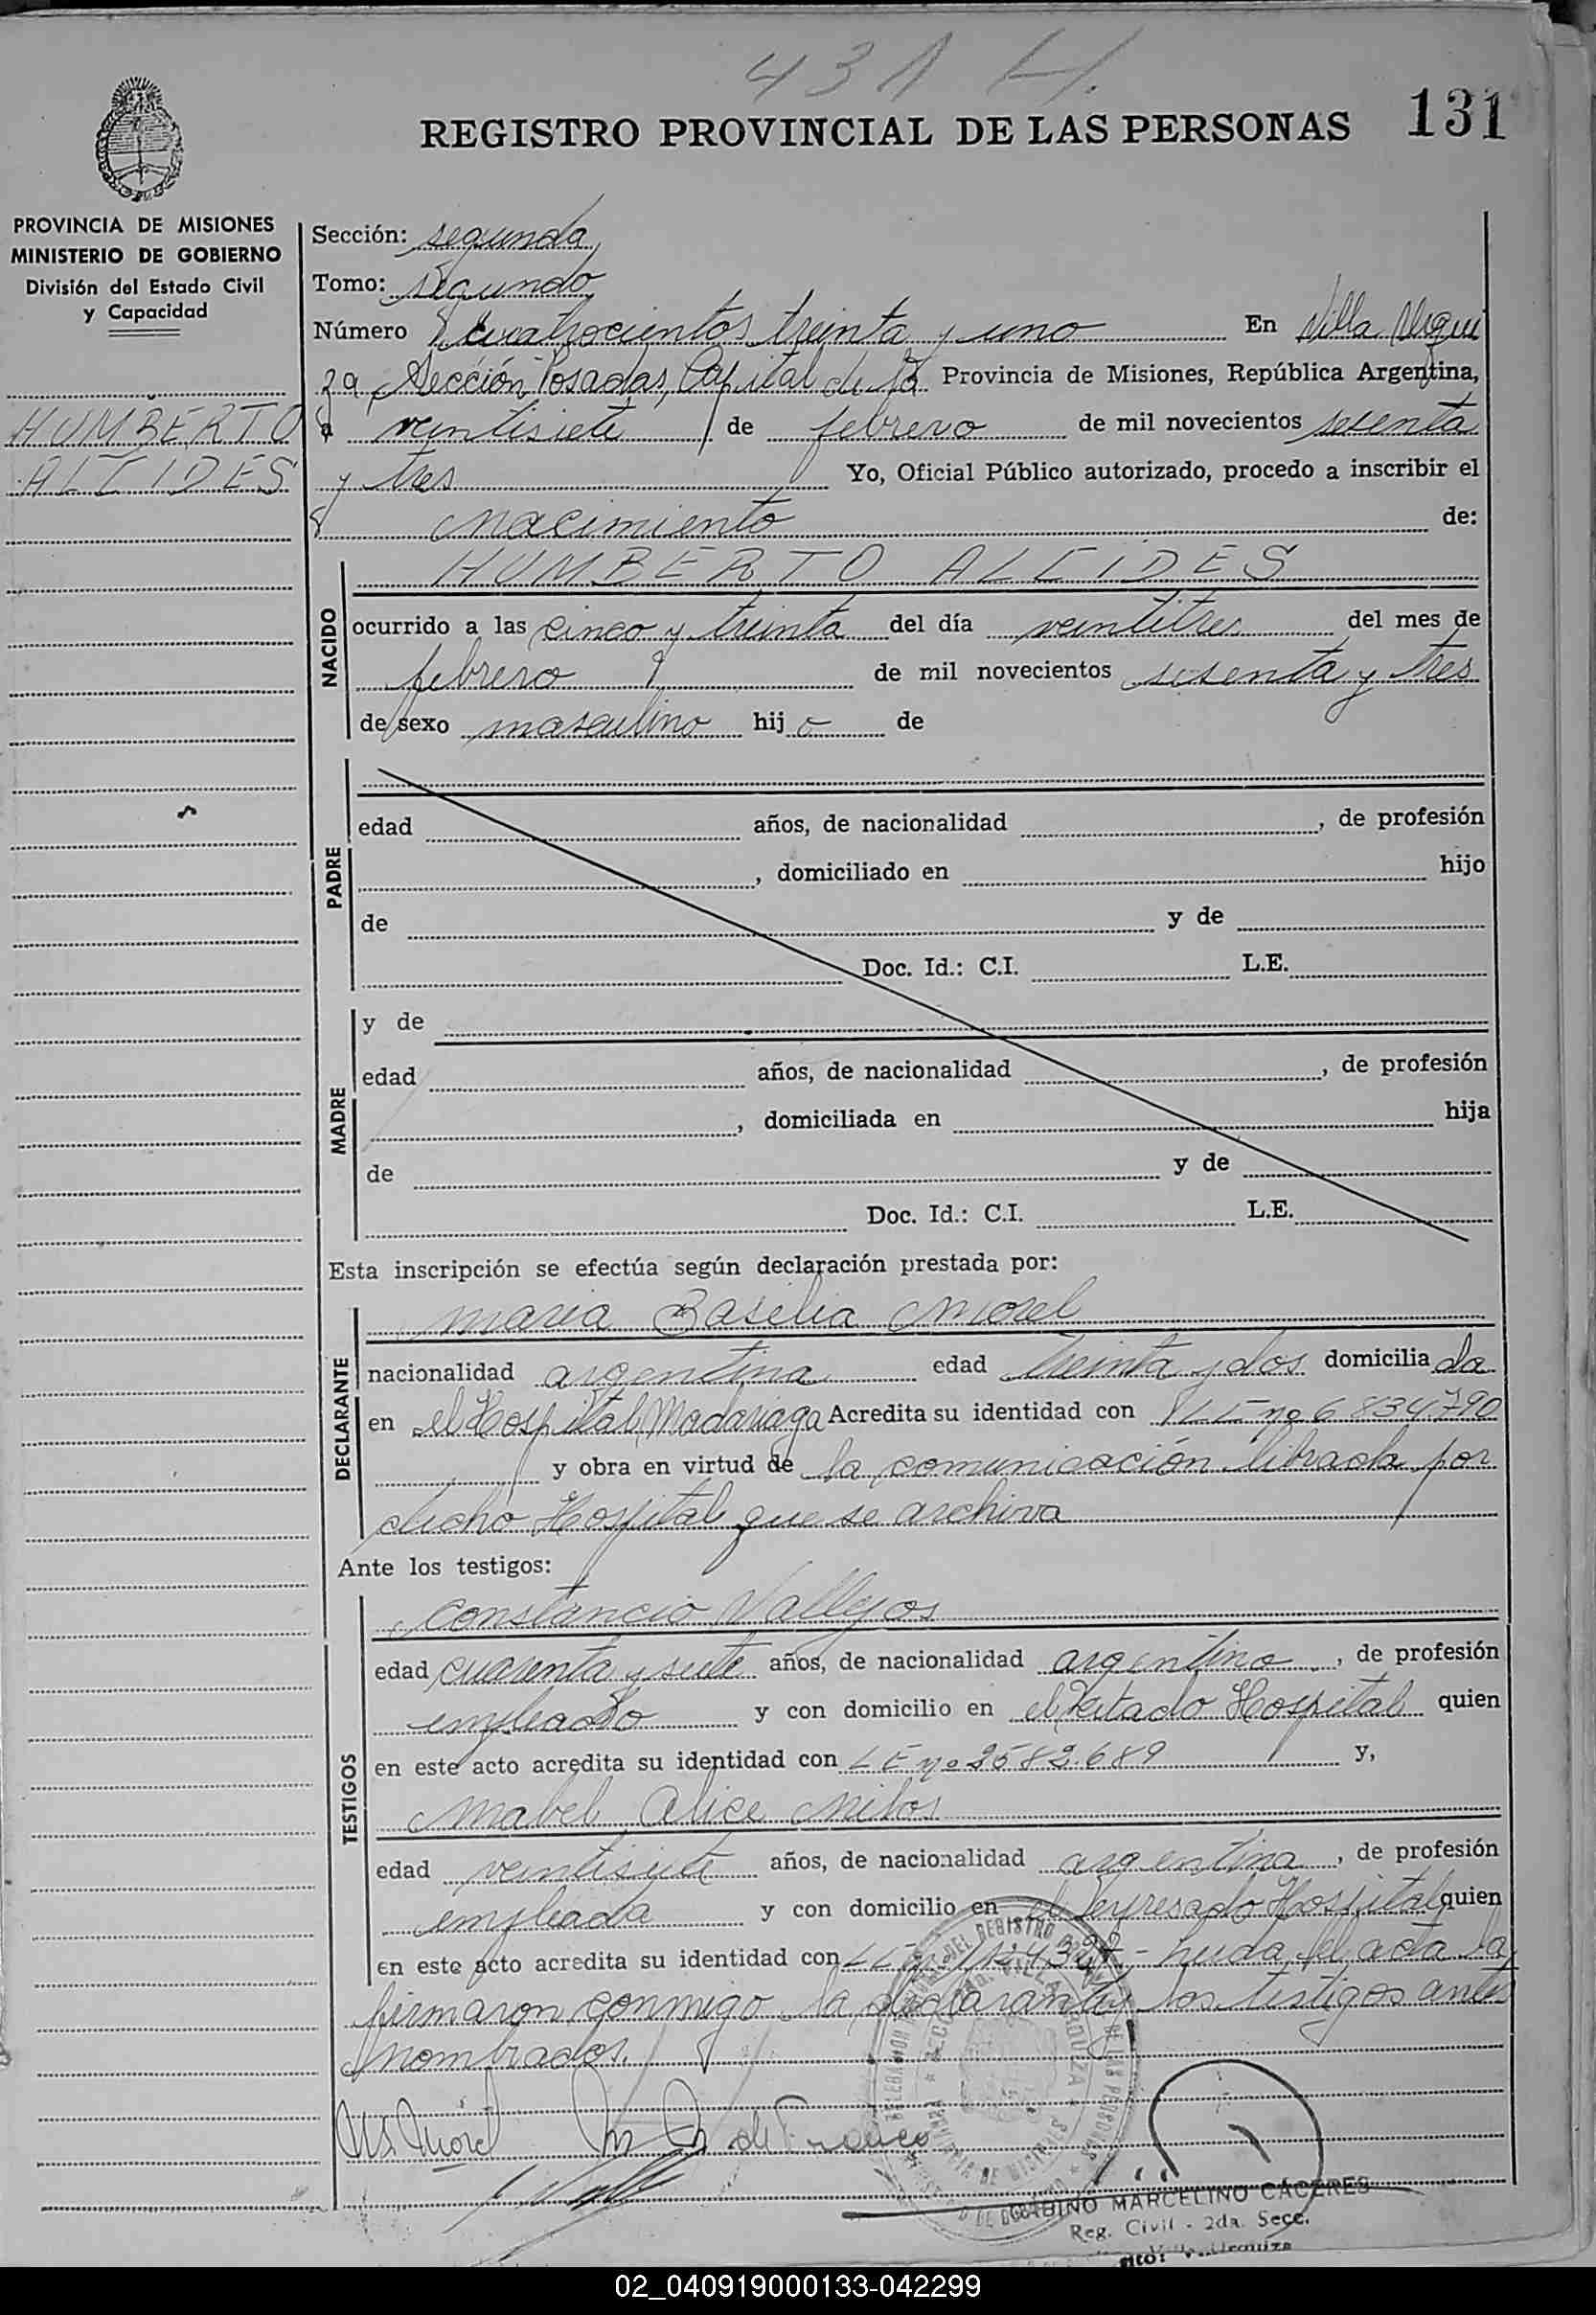 431 H.
REGISTRO PROVINCIAL DE LAS PERSONAS 131
PROVINCIA DE MISIONES
MINISTERIO DE GOBIERNO
División del Estado Civil
y Capacidad
HUMBERTO
ALCIDES
Sección: segunda
Tomo: segundo
Número cuatrocientos treinta y uno En Villa Urqui
za, Sección Posadas, Capital de la Provincia de Misiones, República Argentina,
a veintisiete de febrero de mil novecientos sesenta
y tres Yo, Oficial Público autorizado, procedo a inscribir el
nacimiento de:
NACIDO
HUMBERTO ALCIDES
ocurrido a las cinco y treinta del día veintitres del mes de
febrero de mil novecientos sesenta y tres
de sexo masculino hijo de
PADRE
edad años, de nacionalidad , de profesión
, domiciliado en hijo
de y de
Doc. Id.: C.I. L.E.
MADRE
y de
edad años, de nacionalidad , de profesión
, domiciliada en hija
de y de
Doc. Id.: C.I. L.E.
Esta inscripción se efectúa según declaración prestada por:
DECLARANTE
Maria Basilia Morel
nacionalidad argentina edad treinta y dos domiciliada
en el Hospital Madariaga Acredita su identidad con nº 6834790
y obra en virtud de la comunicación librada por
dicho Hospital que se archiva
Ante los testigos:
TESTIGOS
Constancio Vallejos
edad cuarenta y siete años, de nacionalidad argentino, de profesión
empleado y con domicilio en el citado Hospital quien
en este acto acredita su identidad con LE nº 2582.689 y,
Mabel Alice
edad veintisiete años, de nacionalidad argentina, de profesión
empleada y con domicilio en el Hospital quien
en este acto acredita su identidad con el acta la
firmaron conmigo la declarante y los testigos antes
nombrados.
Morel
GABINO MARCELINO CACERES
Reg. Civil - 2da. Secc.
02_040919000133-042299